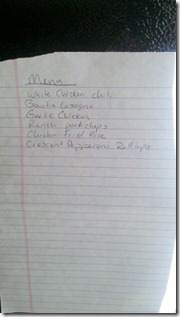 Menu
White Chicken chili
Lasagna
Garlic Chicken
Ranch porkchops
Chicken Fried Rice
Crescent Pepperoni Roll ups